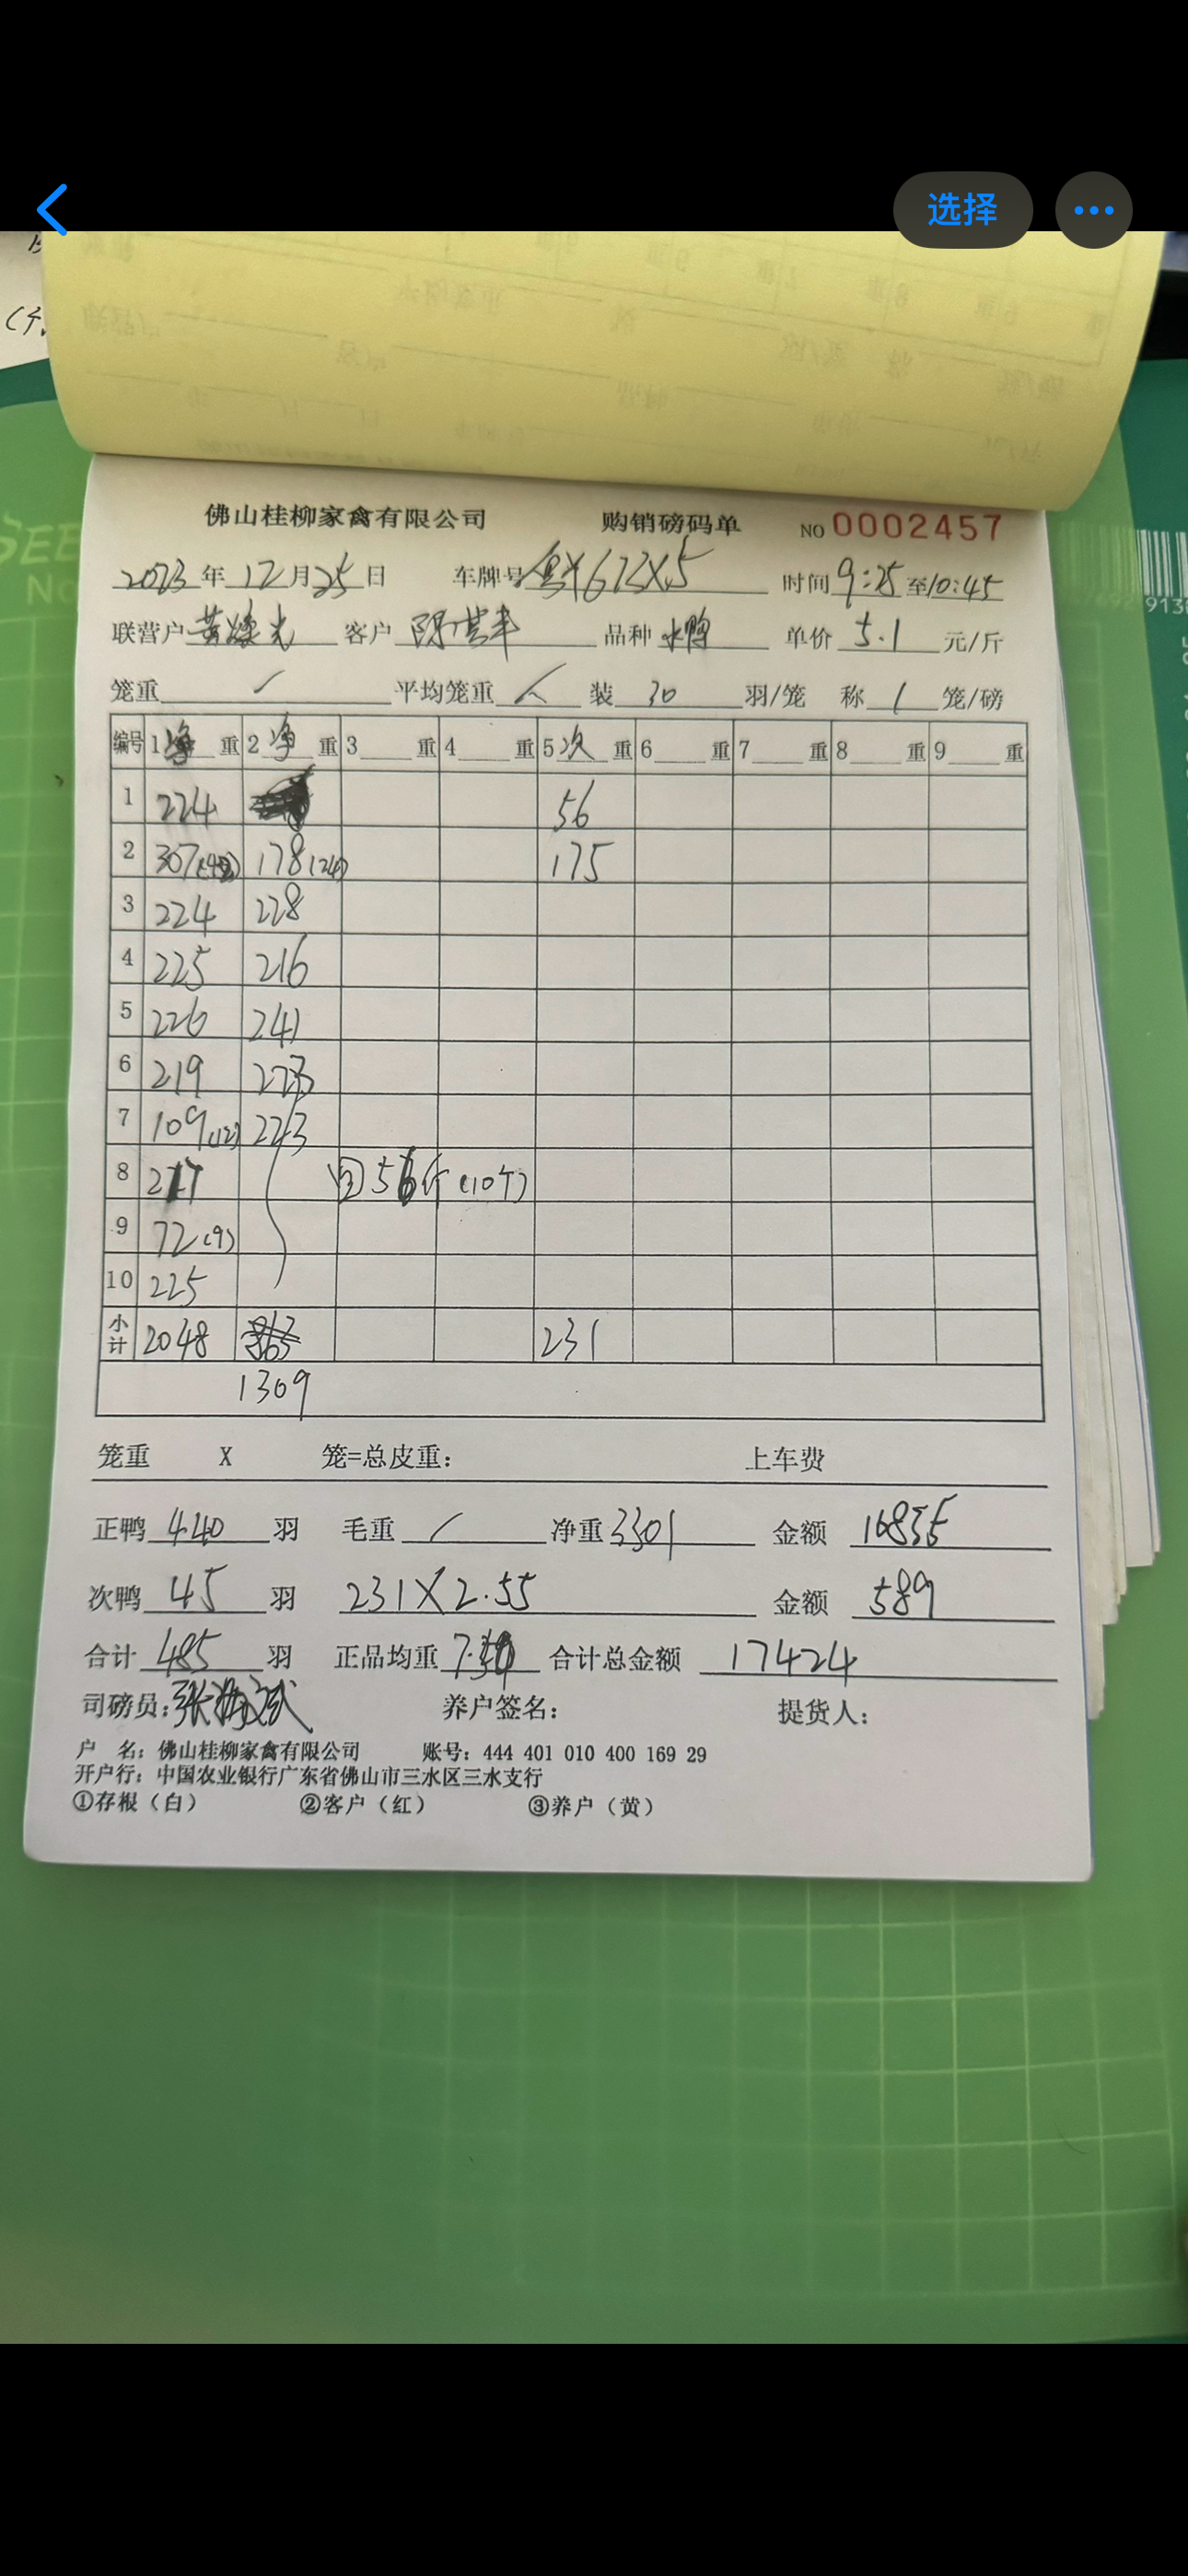 选择
佛山桂柳家禽有限公司 购销磅码单 NO 0002457
2023年12月25日 车牌号 时间9:25至10:45
联营户 客户 品种水鸭 单价5.1元/斤
笼重 平均笼重 装30羽/笼 称1笼/磅
编号 1净重 2净重 3重 4重 5次重 6重 7重 8重 9重
1 224 56
2 178(24) 175
3 224 228
4 225 216
5 226 241
6 219 223
7 109(12) 223
8 217 56斤(10个)
9 72(9)
10 225
小计 2048 231
1309
笼重 X 笼=总皮重: 上车费
正鸭440羽 毛重 净重3301 金额16835
次鸭45羽 231X2.55 金额589
合计485羽 正品均重 合计总金额17424
司磅员: 养户签名: 提货人:
户 名: 佛山桂柳家禽有限公司 账号: 444 401 010 400 169 29
开户行: 中国农业银行广东省佛山市三水区三水支行
①存根(白) ②客户(红) ③养户(黄)